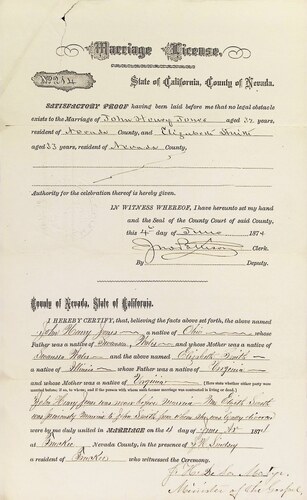 Marriage License.
State of California, County of Nevada.
SATISFACTORY PROOF having been laid before me that no legal obstacle
exists to the Marriage of John Henry Jones aged 37 years,
resident of Nevada County, and Elizabeth Smith
aged 33 years, resident of Nevada County.
Authority for the celebration thereof is hereby given.
IN WITNESS WHEREOF, I have hereunto set my hand
and the Seal of the County Court of said County,
this 4th day of June 1874
Clerk.
By Deputy.
County of Nevada, State of California.
I HEREBY CERTIFY, that, believing the facts above set forth, the above named
John Henry Jones a native of Ohio whose
Father was a native of Swansea, Wales and whose Mother was a native of
Swansea Wales and the above named Elizabeth Smith
a native of Illinois whose Father was a native of Virginia
and whose Mother was a native of Virginia
John Henry Jones was never before married Mrs Smith
was previously married to John Smith from whom she was divorced
were by me duly united in MARRIAGE on the day of 1874 at
Truckee Nevada County, in the presence of
resident of Truckee who witnessed the Ceremony.
Minister of the Gospel